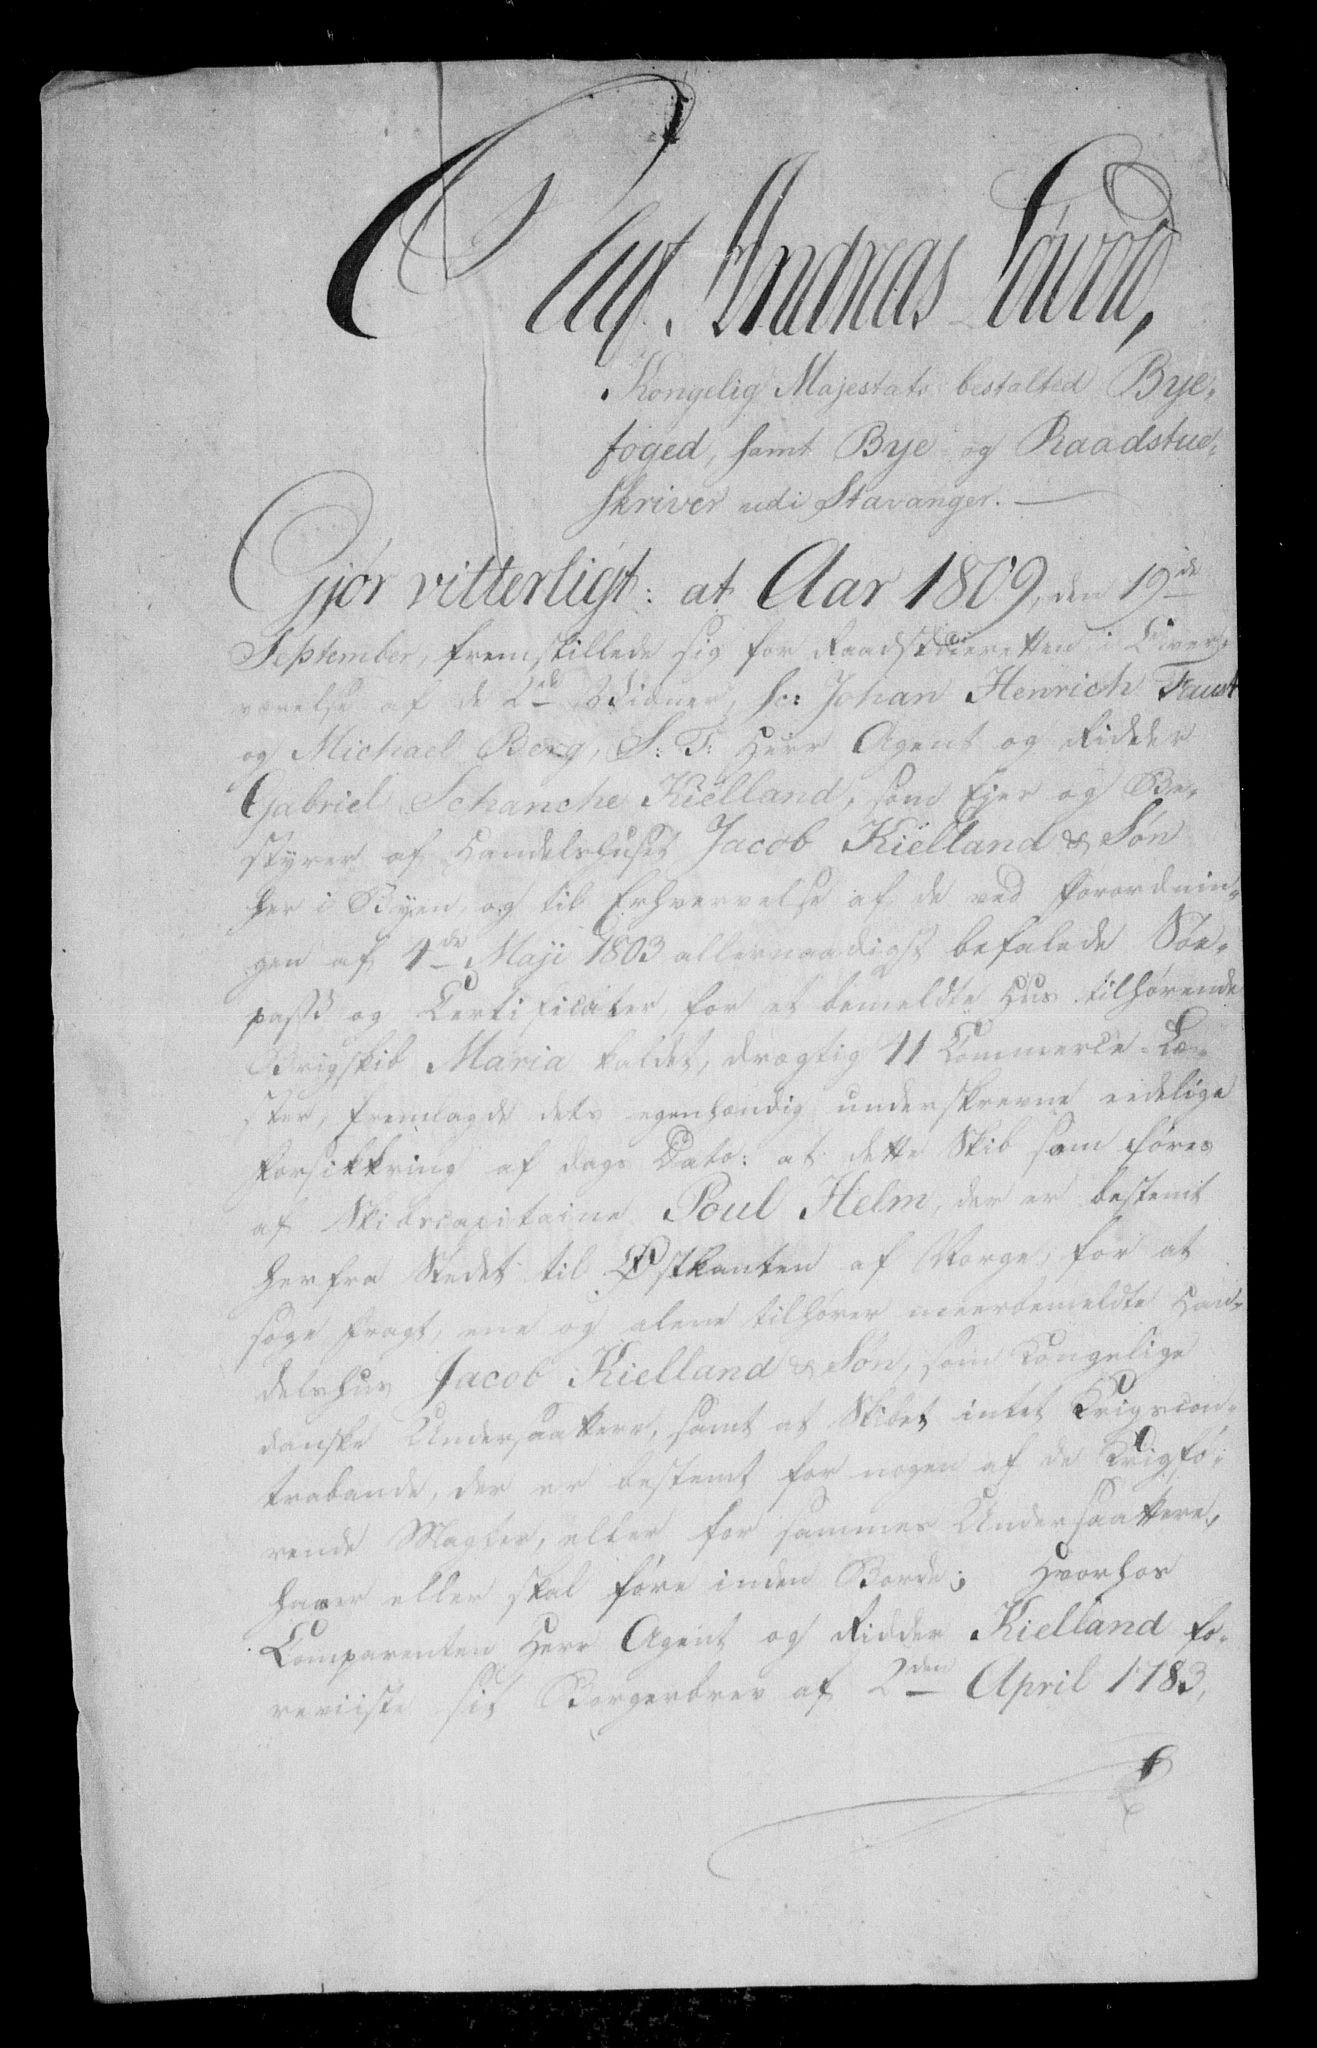 Oluf Andreas Løwold,
Kongelig Majestæts bestalted Bye-
foged, samt Bye- og Raadstue-
skriver udi Stavanger.
Gjør vitterligt: at Aar 1809, den 19de
September, fremstillede sig for Raadstueretten i Over-
værelse af de 2de Vidner, Sr: Johan Henrich Faust
og Michael Berg, S: T: Herr Agent og Ridder
Gabriel Schanche Kiëlland, som Ejer og Be-
styrer af Handelshuset Jacob Kiëlland & Søn
her i Byen, og til Erhvervelse af de ved Forordnin-
gen af 4de Maji 1803 allernaadigst befalede Søe-
passe og Certificater, for et bemeldte Hus tilhørende
Brigskib Maria kaldet, drægtig 11 Commerce-Læ-
ster, fremlagde dets egenhændig underskrevne eedelige
Forsikkring af dags Dato: at dette Skib som føres
af Skibscapitaine Poul Helm, der er bestemt
herfra Stedet til Østkanten af Norge, for at
søge Fragt, ene og alene tilhører meerbemeldte Han-
delshus Jacob Kielland & Søn, som Kongelige
danske Undersaattere, samt at Skibet intet Krigscon-
trabande, der er bestemt for nogen af de Krigfø-
rende Magter, eller for sammes Undersaattere,
haver eller skal føre inden Borde; Hvorhos
Comparenten Herr Agent og Ridder Kielland fo-
reviiste sit Borgerbrev af 2den April 1783,